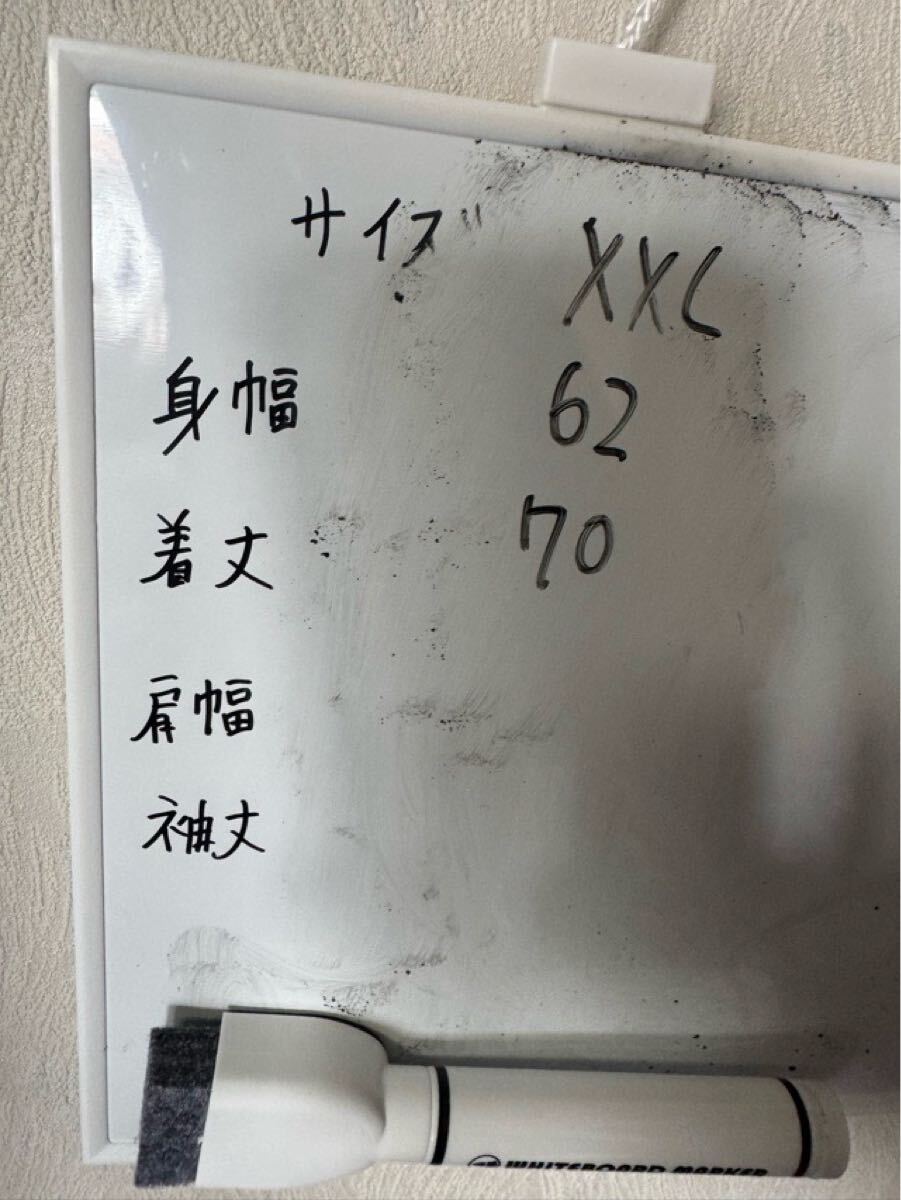 サイズ XXL
身幅 62
着丈 70
肩幅
袖丈
WHITEBOARD MARKER